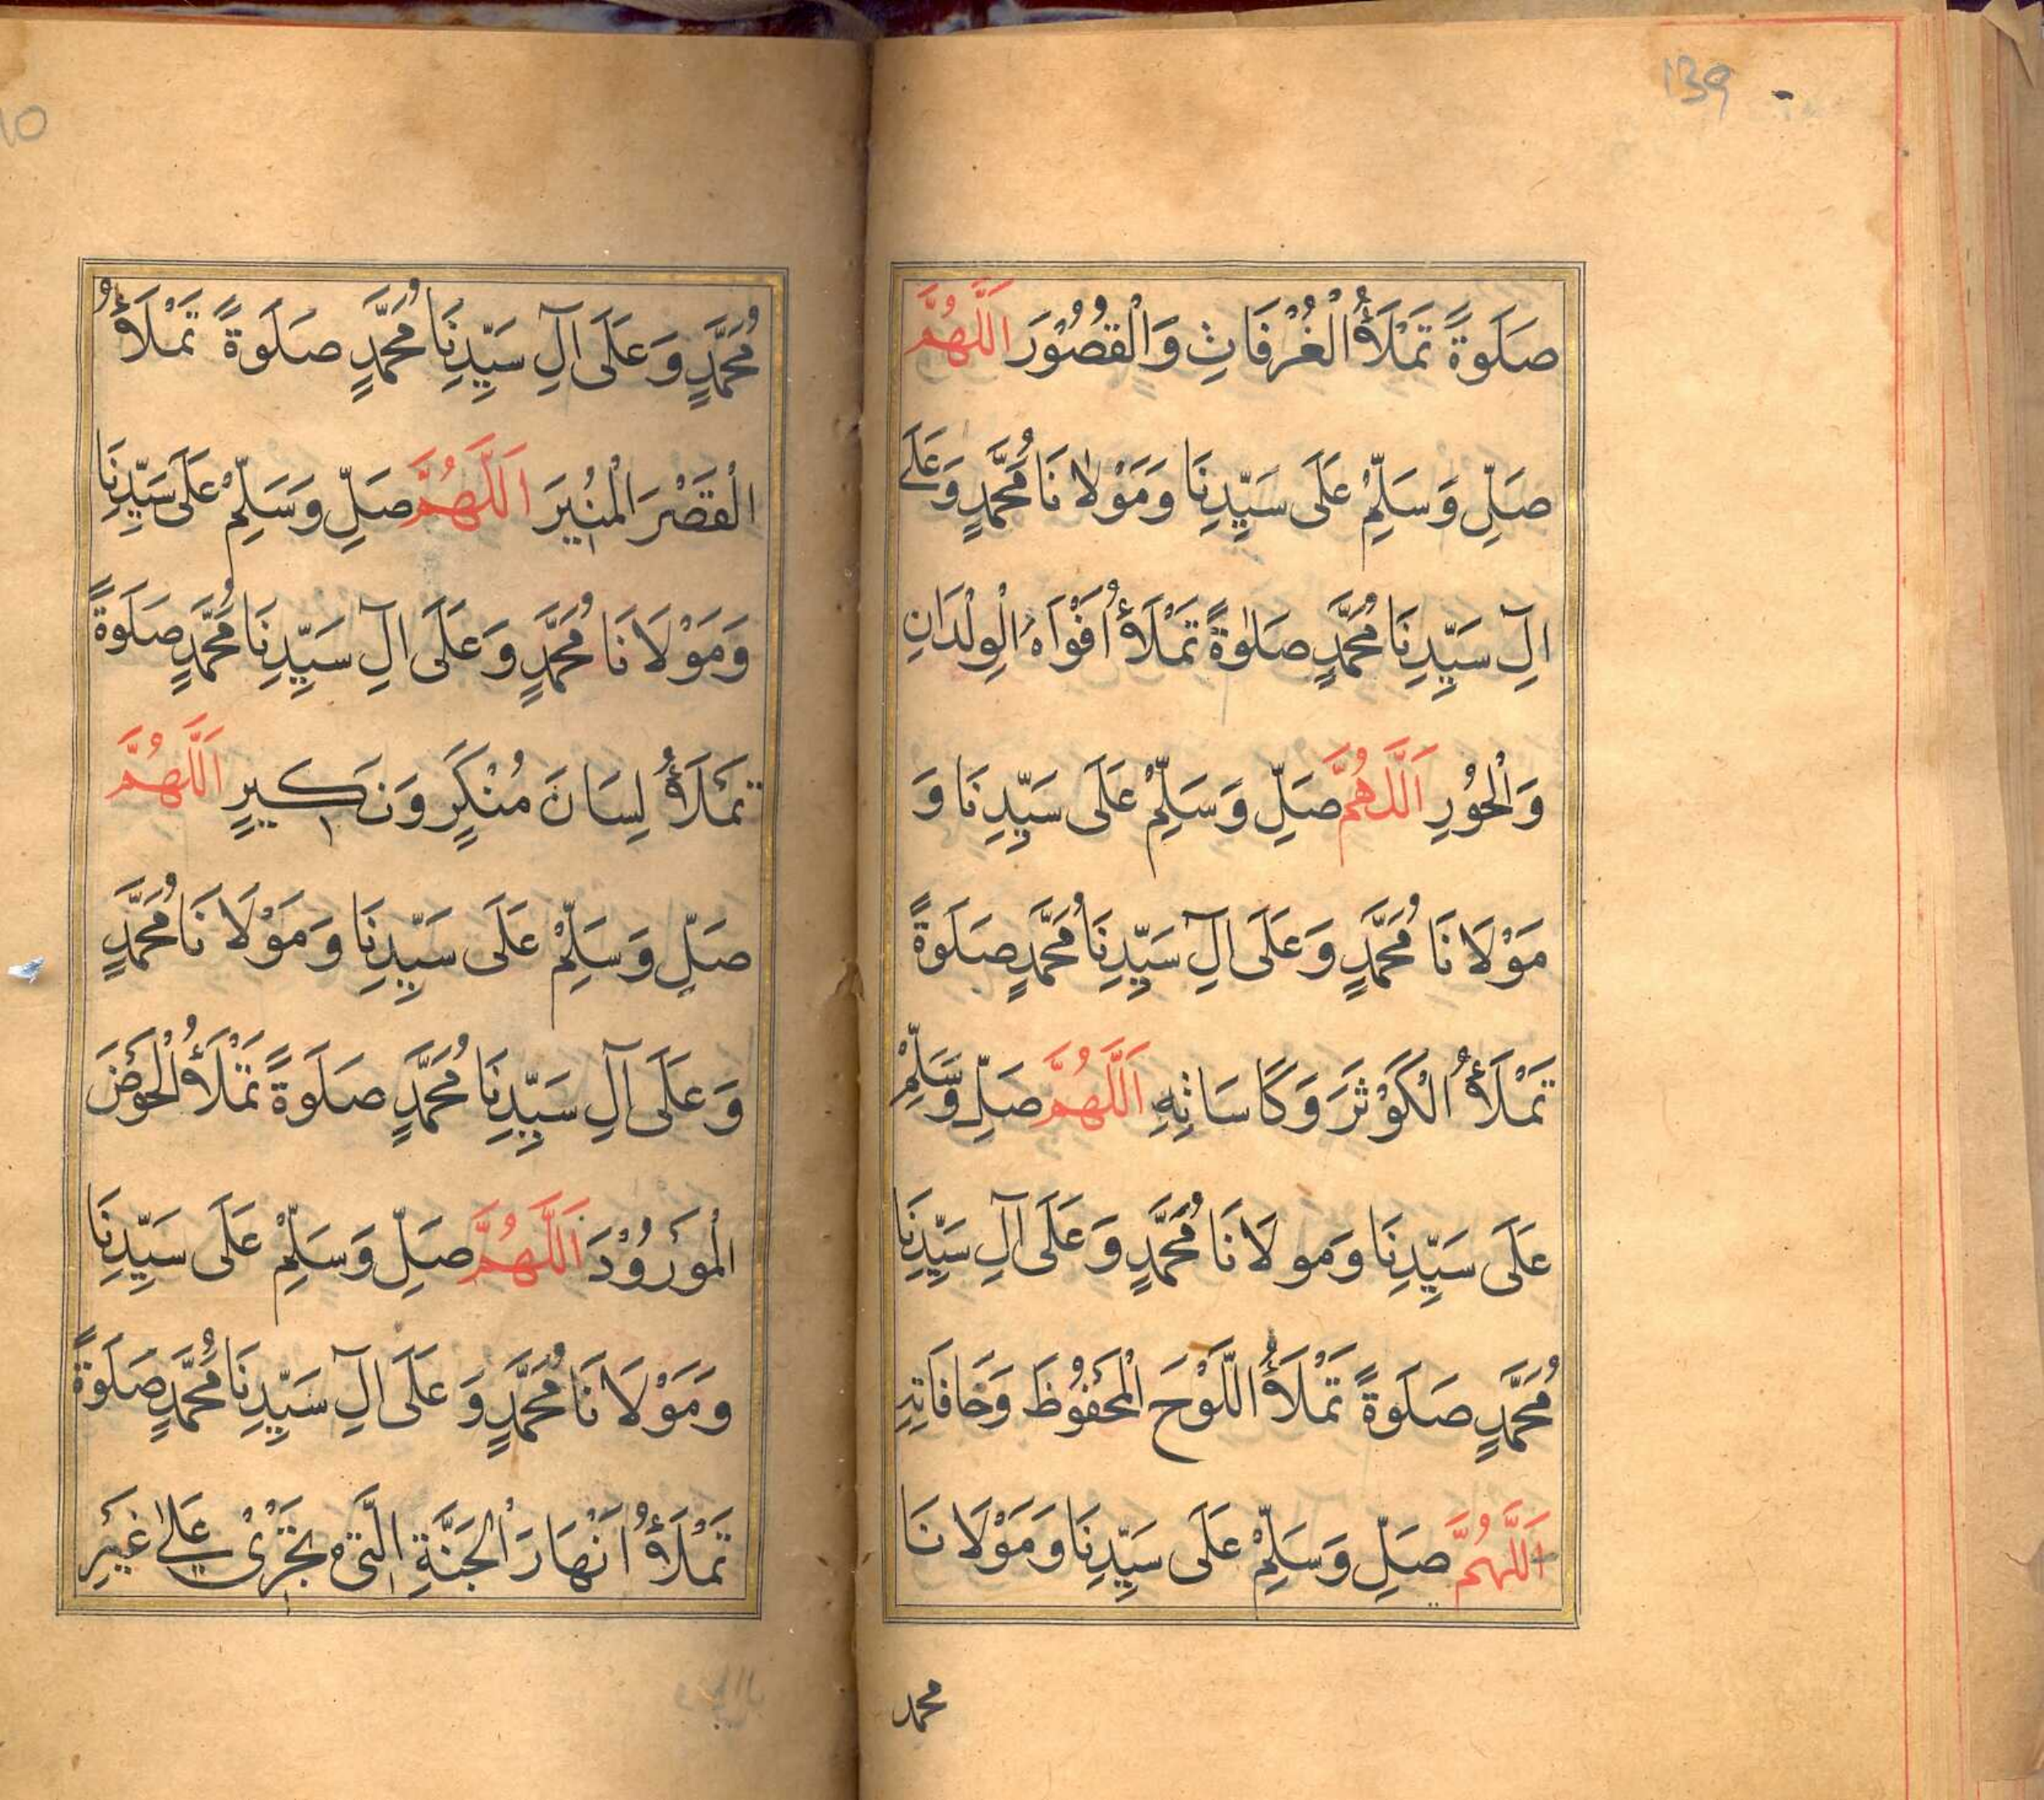 139
صَلَوةً تَمْلَأُ الْغُرْفَاتِ وَالْقُصُوْرَ اَللّٰهُمَّ
صَلِّ وَسَلِّمْ عَلَى سَيِّدِنَا وَمَوْلَانَا مُحَمَّدٍ وَعَلَے
اٰلِ سَيِّدِنَا مُحَمَّدٍ صَلٰوةً تَمْلَأُ اَفْوَاهُ الْوِلْدَانِ
وَالْحُوْرِ اَللّٰهُمَّ صَلِّ وَسَلِّمْ عَلَى سَيِّدِنَا وَ
مَوْلَانَا مُحَمَّدٍ وَعَلَى اٰلِ سَيِّدِنَا مُحَمَّدٍ صَلَوةً
تَمْلَأُ الْكَوْثَرَ وَكَاسَاتِهِ اَللّٰهُمَّ صَلِّ وَسَلِّمْ
عَلَى سَيِّدِنَا وَمولَانَا مُحَمَّدٍ وَعَلَى اٰلِ سَيِّدِنَا
مُحَمَّدٍ صَلَوةً تَمْلَأُ اللَّوْحَ الْمَحْفُوْظَ وَحَافَاتِهِ
اَللّٰهُمَّ صَلِّ وَسَلِّمْ عَلَى سَيِّدِنَا وَمَوْلَانَا
محمد
مُحَمَّدٍ وَعَلَى اٰلِ سَيِّدِنَا مُحَمَّدٍ صَلَوةً تَمْلَأُ
الْقَصْرَ الْمُنِيْرَ اَللّٰهُمَّ صَلِّ وَسَلِّمْ عَلَى سَيِّدِنَا
وَمَوْلَانَا مُحَمَّدٍ وَعَلَى اٰلِ سَيِّدِنَا مُحَمَّدٍ صَلَوةً
تَمْلَأُ لِسَانَ مُنْكَرٍ وَنَكِيرٍ اَللّٰهُمَّ
صَلِّ وَسَلِّمْ عَلَى سَيِّدِنَا وَمَوْلَانَا مُحَمَّدٍ
وَعَلَى اٰلِ سَيِّدِنَا مُحَمَّدٍ صَلَوةً تَمْلَأُ الْحَوْضَ
الْمَوْرُوْدَ اَللّٰهُمَّ صَلِّ وَسَلِّمْ عَلَى سَيِّدِنَا
وَمَوْلَانَا مُحَمَّدٍ وَعَلَى اٰلِ سَيِّدِنَا مُحَمَّدٍ صَلَوةً
تَمْلَأُ اَنْهَارَ الْجَنَّةِ الَّتِىْ تَجْرِىْ عَلٰے غَيْرِ